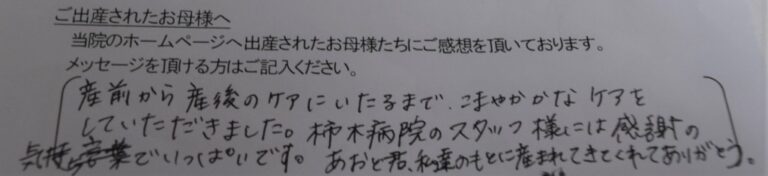 ご出産されたお母様へ
当院のホームページへ出産されたお母様たちにご感想を頂いております。
メッセージを頂ける方はご記入ください。
産前から産後のケアにいたるまで、こまやかかなケアを
していただきました。柿木病院のスタッフ様には感謝の
気持ちでいっぱいです。あおと君、私達のもとに産まれてきてくれてありがとう。